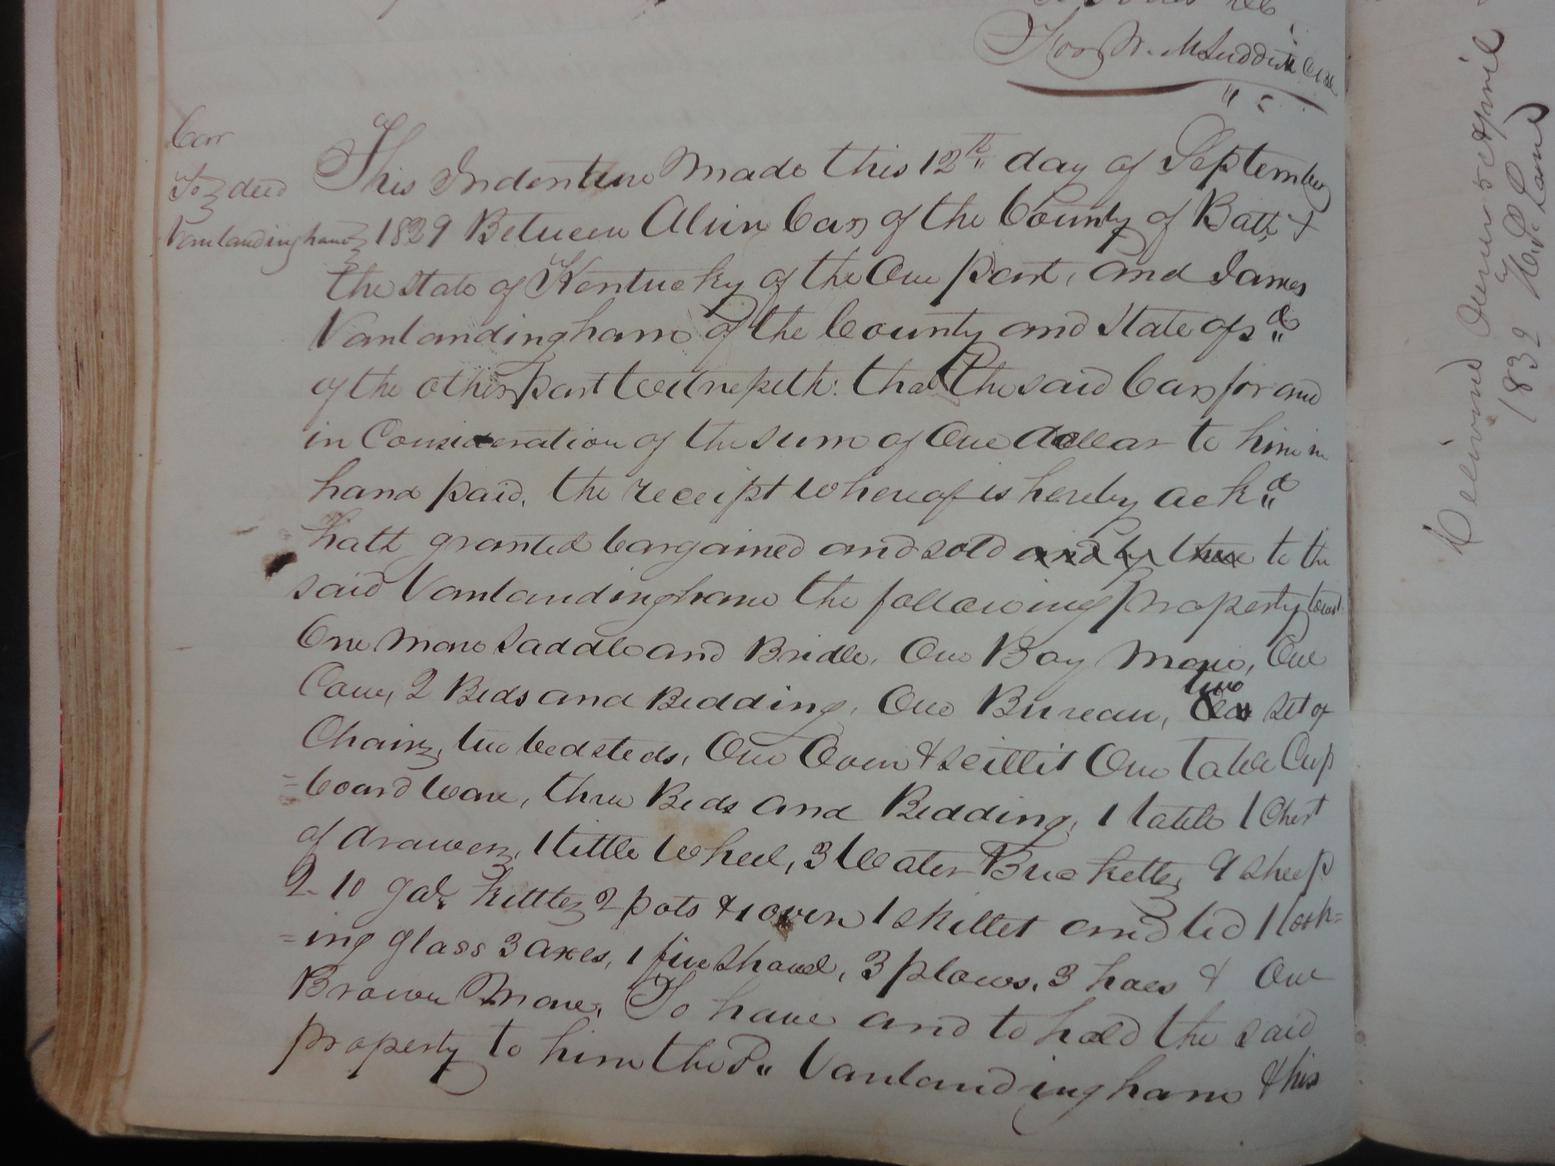 Carr
To } deed
Vanlandingham }
This Indenture Made this 12th day of September
1829 Between Alvin Carr of the County of Bath &
the State of Kentucky of the One part, and James
Vanlandingham of the County and State afsd
of the other part Witnesseth: that the said Carr for and
in Consideration of the sum of One dollar to him in
hand paid, the receipt whereof is hereby ackd
hath granted bargained and sold to the
said Vanlandingham the following property towit
One Mans Saddle and Bridle, One Bay Mare, One
Cow, 2 Beds and Bedding, One Bureau, two set of
Chairs, two bedsteds, One Oven & scillit One table Cup
=board ware, three Beds and Bedding, 1 table 1 Chest
of drawers, 1 little Wheel, 3 Water Bucketts 9 sheep
2-10 gal. kittles 2 pots & 1 oven 1 skillet and led 1 look=
=ing glass 3 axes, 1 fire shovel, 3 plows, 3 hoes & One
Brown Mare, To have and to hold the said
property to him the Sd Vanlandingham & his
Delivered Owner 5 April
1832